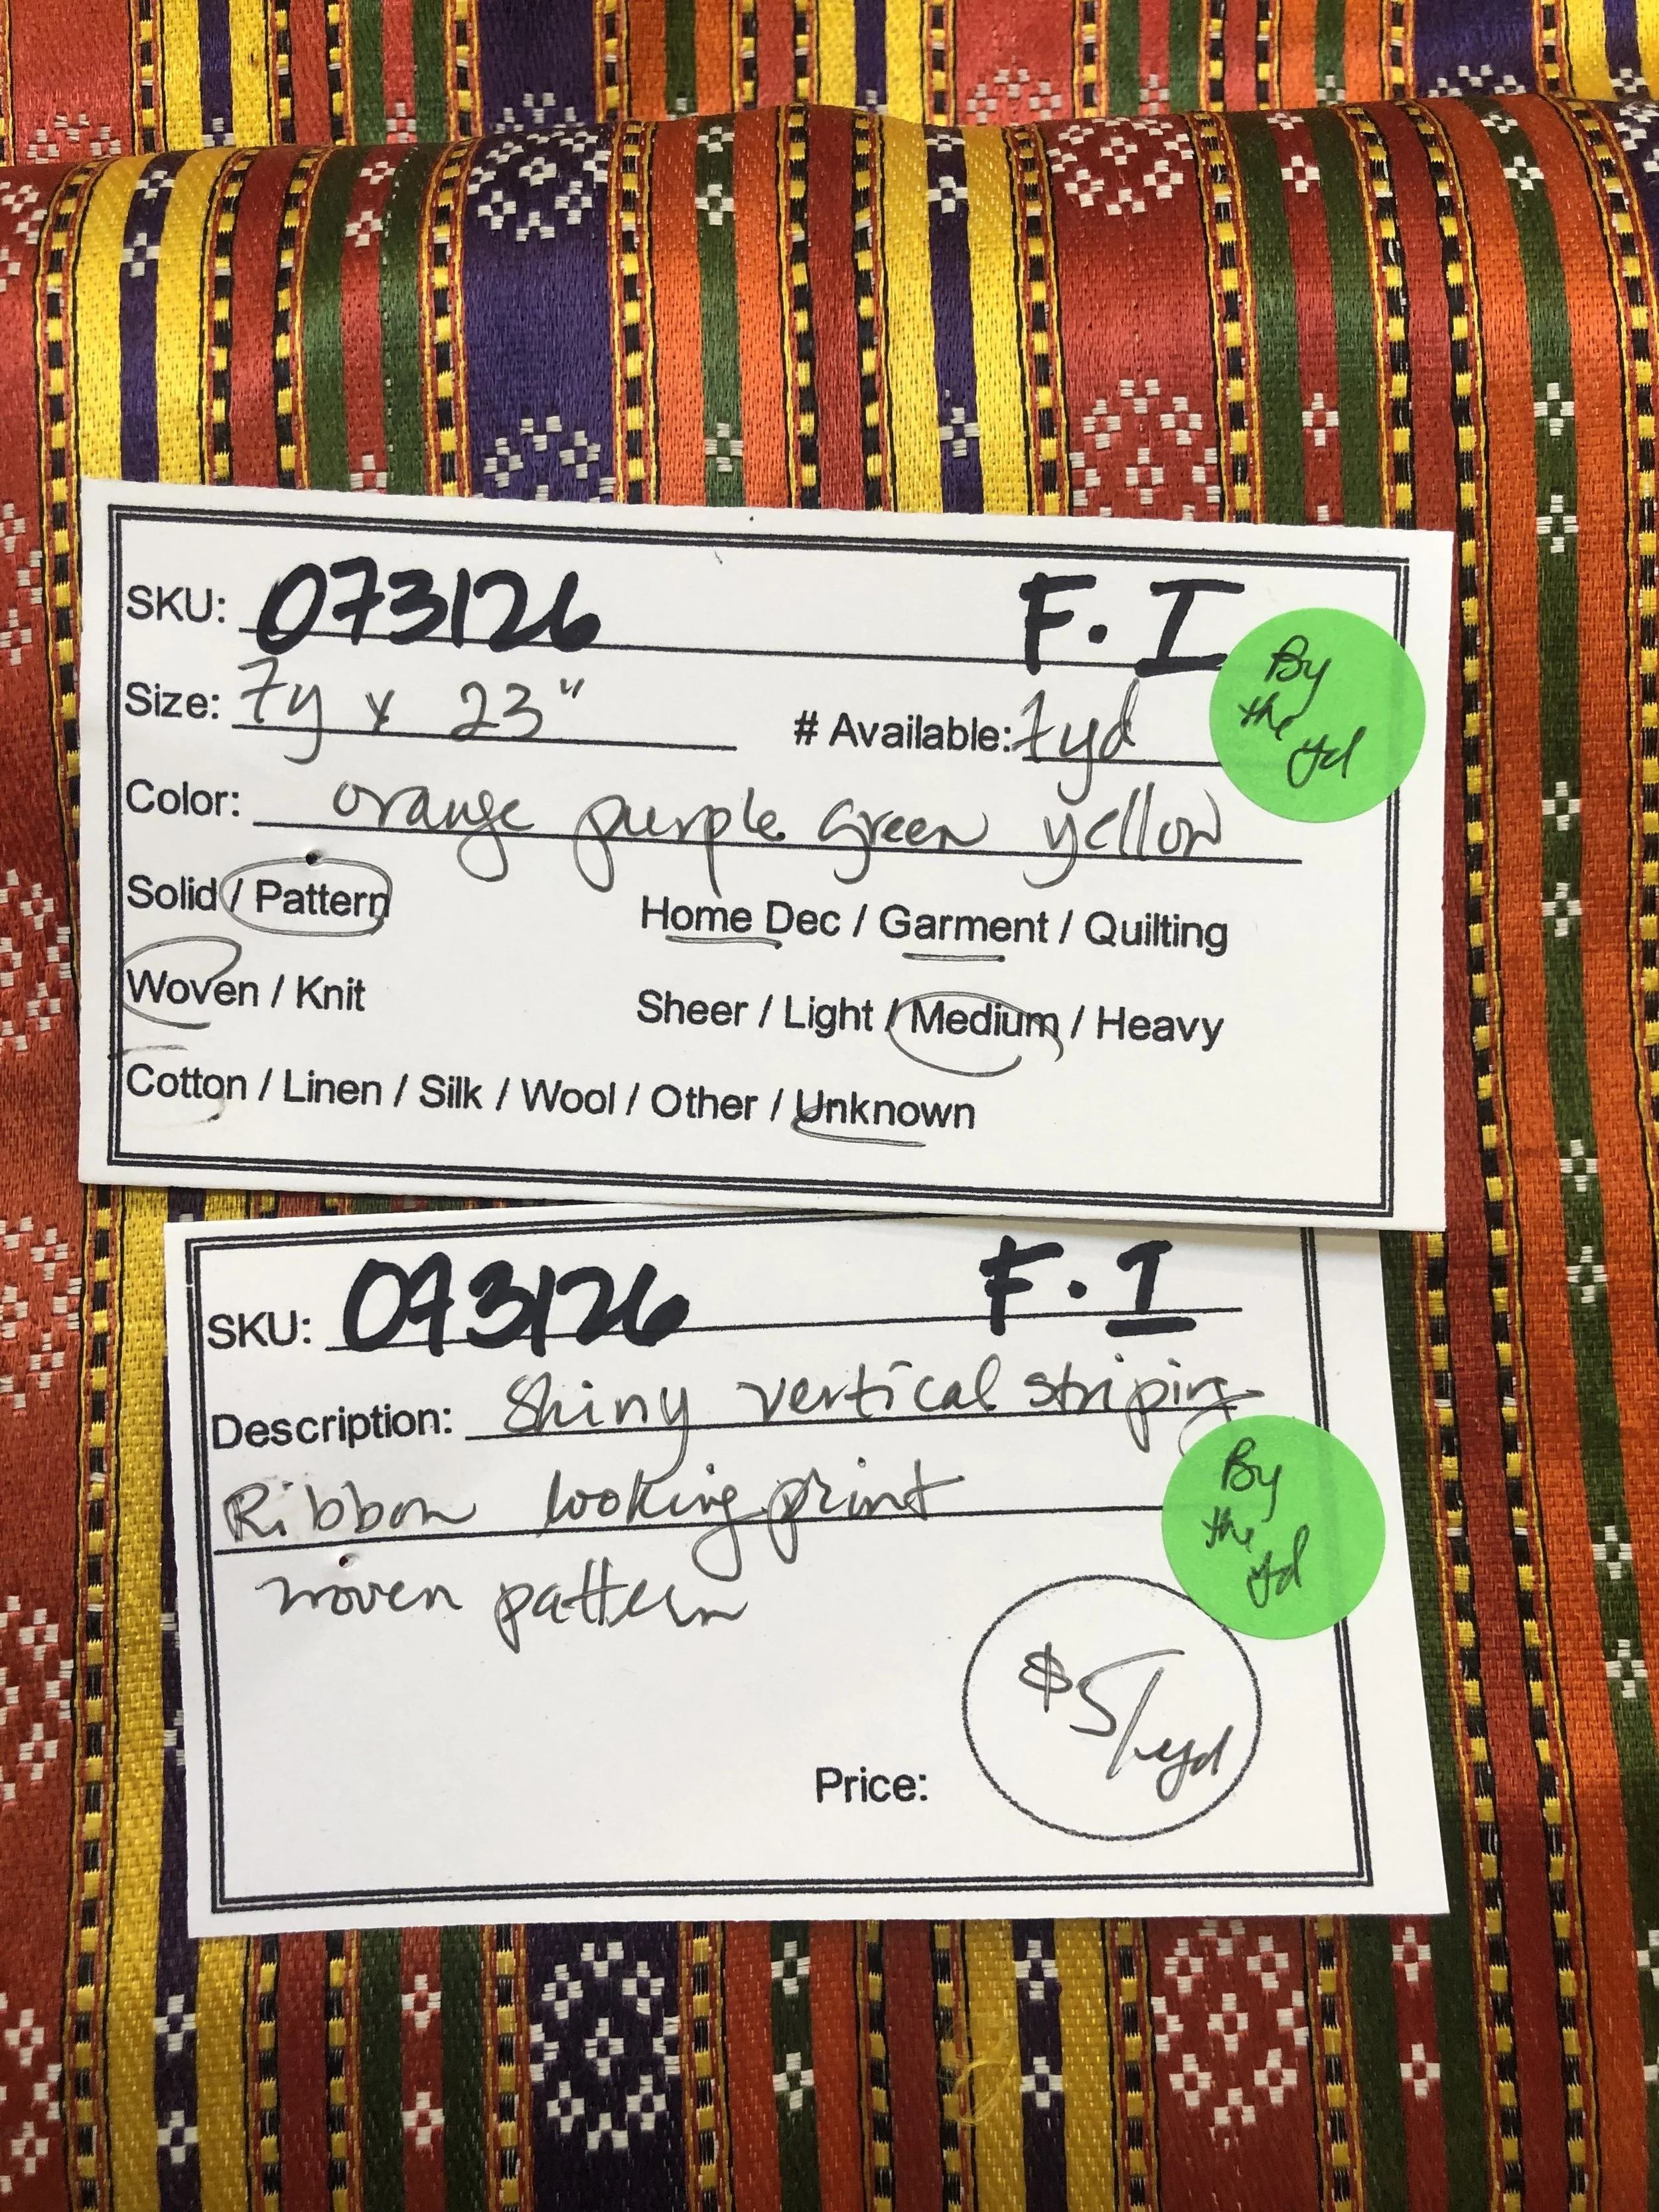 SKU: 073126 F. I
Size: 7y x 23" # Available: 7yd
By
the
yd
Color: orange purple green yellow
Solid / Pattern Home Dec / Garment / Quilting
Woven / Knit Sheer / Light / Medium / Heavy
Cotton / Linen / Silk / Wool / Other / Unknown
SKU: 073126 F. I
Description: Shiny vertical striping
Ribbon looking print
woven pattern
By
the
yd
Price: $5/yd